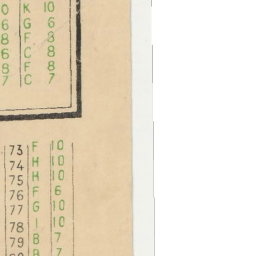 0 K 10
6 G 6
8 F 8
6 C 8
8 F 8
7 C 7
73 F 10
74 H 10
75 H 10
76 F 6
77 G 10
78 I 10
79 B 7
B 7